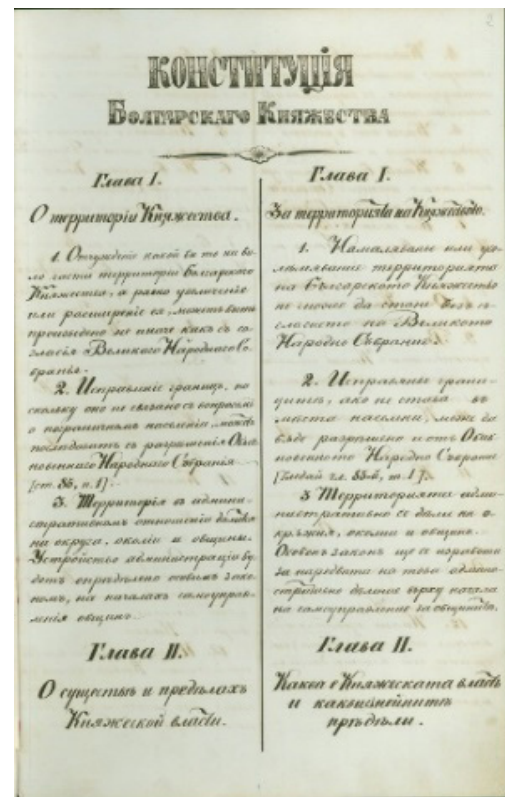 КОНСТИТУЦІЯ
БОЛГАРСКАГО КНЯЖЕСТВА
Глава I.
О территоріи Княжества.
1. Отчужденіе какой бы то ни бы
ло части территоріи Болгарскаго
Княжества, а равно увеличеніе
или расширеніе ея, можетъ быть
произведено не иначе какъ съ со
гласія Великаго Народнаго Со
бранья.
2. Исправленіе границъ, по
скольку оно не связано съ вопросомъ
о пограничномъ населеніи, можетъ
послѣдовать съ разрѣшенія Обык
новеннаго Народнаго Собранія
[ст. 85, п. 1].
3. Территорія въ админи
стративномъ отношеніи дѣлится
на округа, околіи и общины.
Устройство администраціи бу
детъ опредѣлено особымъ зако
номъ, на началахъ самоуправ
ленія общинъ.
Глава II.
О существѣ и предѣлахъ
Княжеской власти.
Глава I.
За територията на Княжеството.
1. Намаляванье или уго
лѣмяванье территорията
на Българското Княжество
не може да стане безъ съ
гласието на Великото
Народно Събрание.
2. Исправянье грани
цитѣ, ако не става въ
мѣста населени, може да
бѫде разрѣшено и отъ Обик
новенното Народно Събрание
3 Территорията адми
нистративно се дѣли на о
крѫжия, околии и общини.
Особенъ законъ ще се изработи
за нарежданье на това админи
стративно дѣление върху начала
на самоуправление за общинитѣ.
Глава II.
Каква е Княжеската власть
и
прѣдѣли.